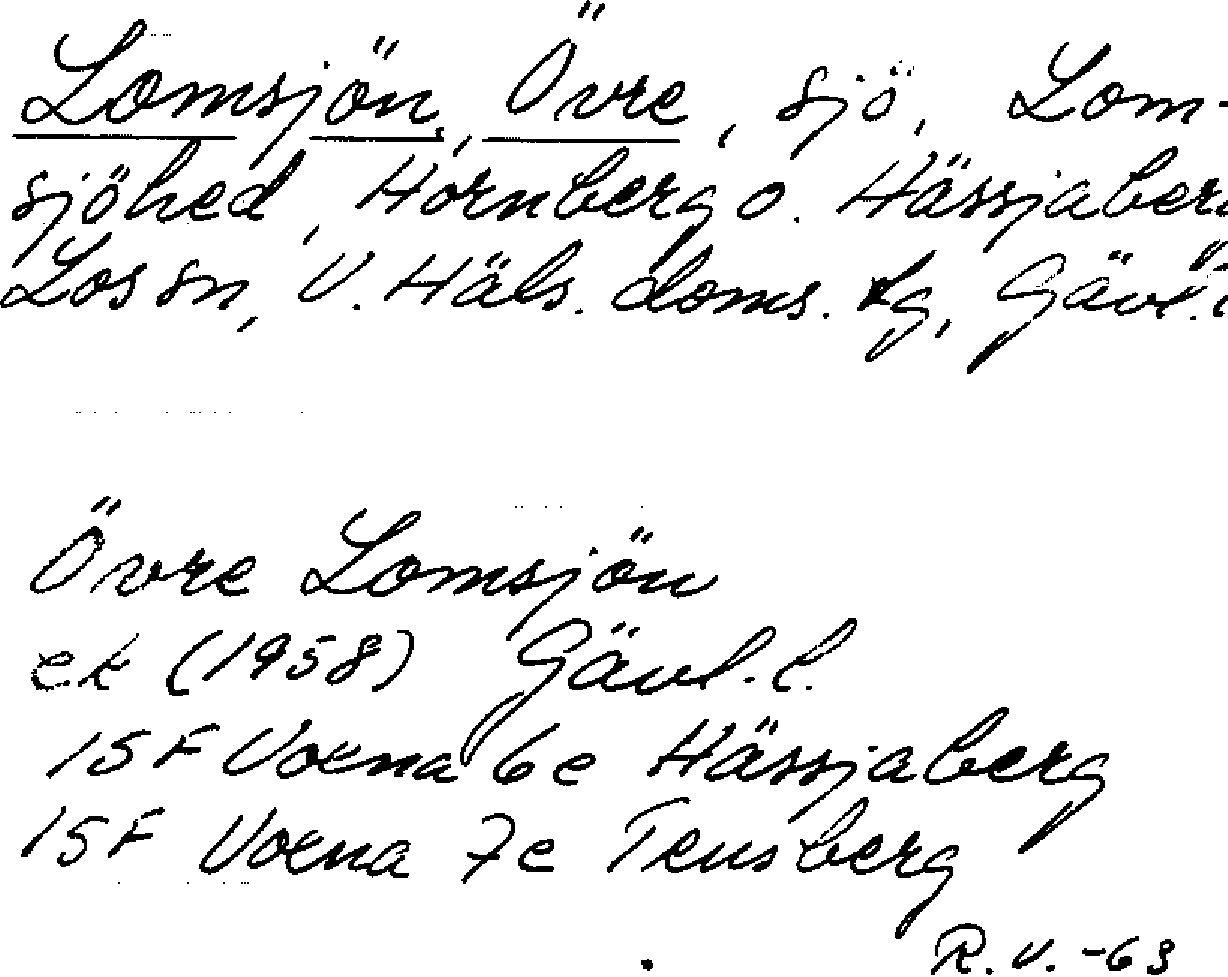 Lomsjön, Övre, sjö, Lom-
sjöhed, Hornberg o. Hässjaberg
Los sn, V. Häls. doms. tg, Gävl. l
Övre Lomsjön
ek (1958) Gävl. l.
15F Voxna 6e Hässjaberg
15F Voxna 7e Tensberg
R.V. -63